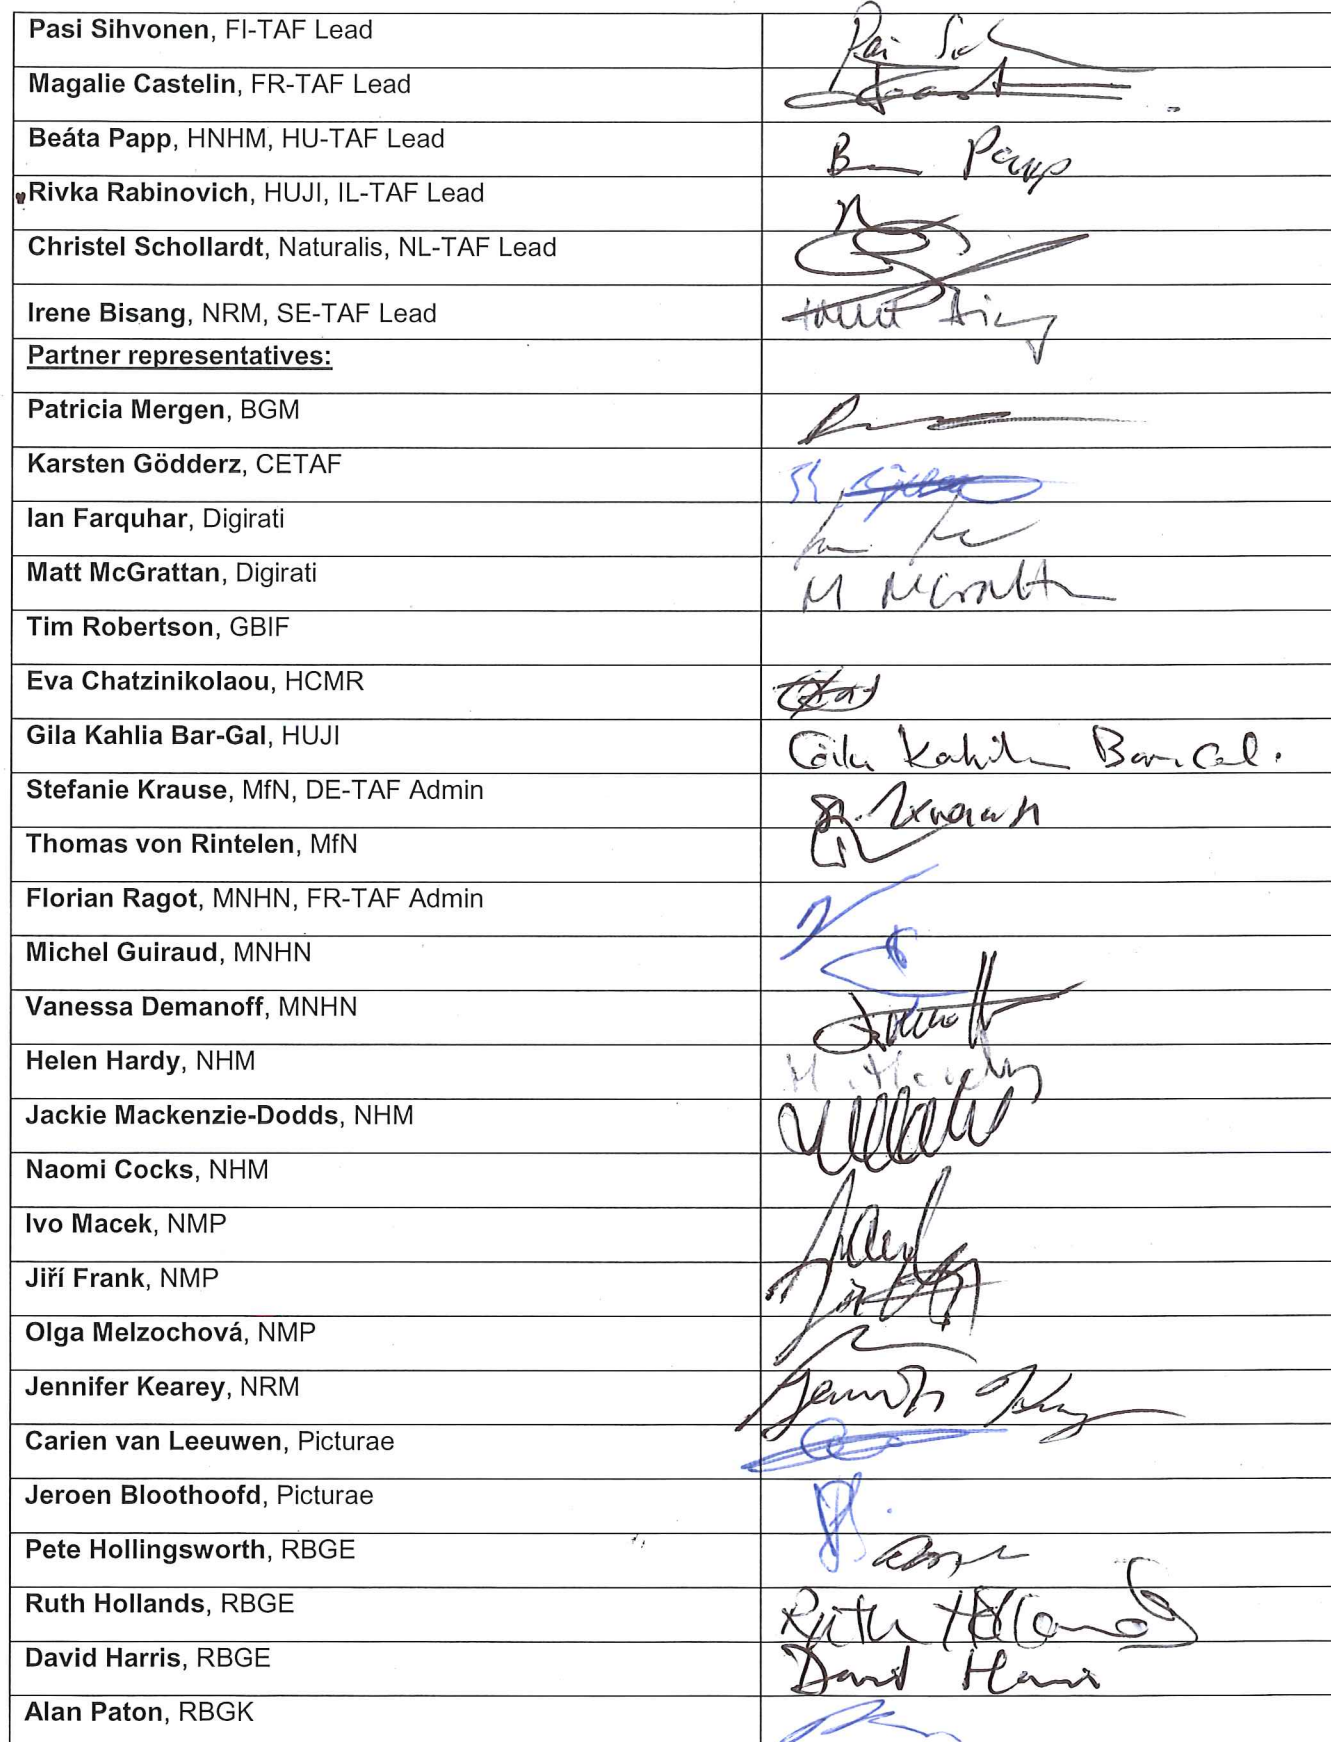 Pasi Sihvonen, FI-TAF Lead
Magalie Castelin, FR-TAF Lead
Beáta Papp, HNHM, HU-TAF Lead
B Papp
Rivka Rabinovich, HUJI, IL-TAF Lead
Christel Schollardt, Naturalis, NL-TAF Lead
Irene Bisang, NRM, SE-TAF Lead
Partner representatives:
Patricia Mergen, BGM
Karsten Gödderz, CETAF
Ian Farquhar, Digirati
Matt McGrattan, Digirati
M McGrattan
Tim Robertson, GBIF
Eva Chatzinikolaou, HCMR
Gila Kahlia Bar-Gal, HUJI
Gila Kahila Bar-Gal.
Stefanie Krause, MfN, DE-TAF Admin
Thomas von Rintelen, MfN
Florian Ragot, MNHN, FR-TAF Admin
Michel Guiraud, MNHN
Vanessa Demanoff, MNHN
Helen Hardy, NHM
Jackie Mackenzie-Dodds, NHM
Naomi Cocks, NHM
Ivo Macek, NMP
Jiří Frank, NMP
Olga Melzochová, NMP
Jennifer Kearey, NRM
Carien van Leeuwen, Picturae
Jeroen Bloothoofd, Picturae
Pete Hollingsworth, RBGE
Ruth Hollands, RBGE
Ruth Hollands
David Harris, RBGE
David Harris
Alan Paton, RBGK